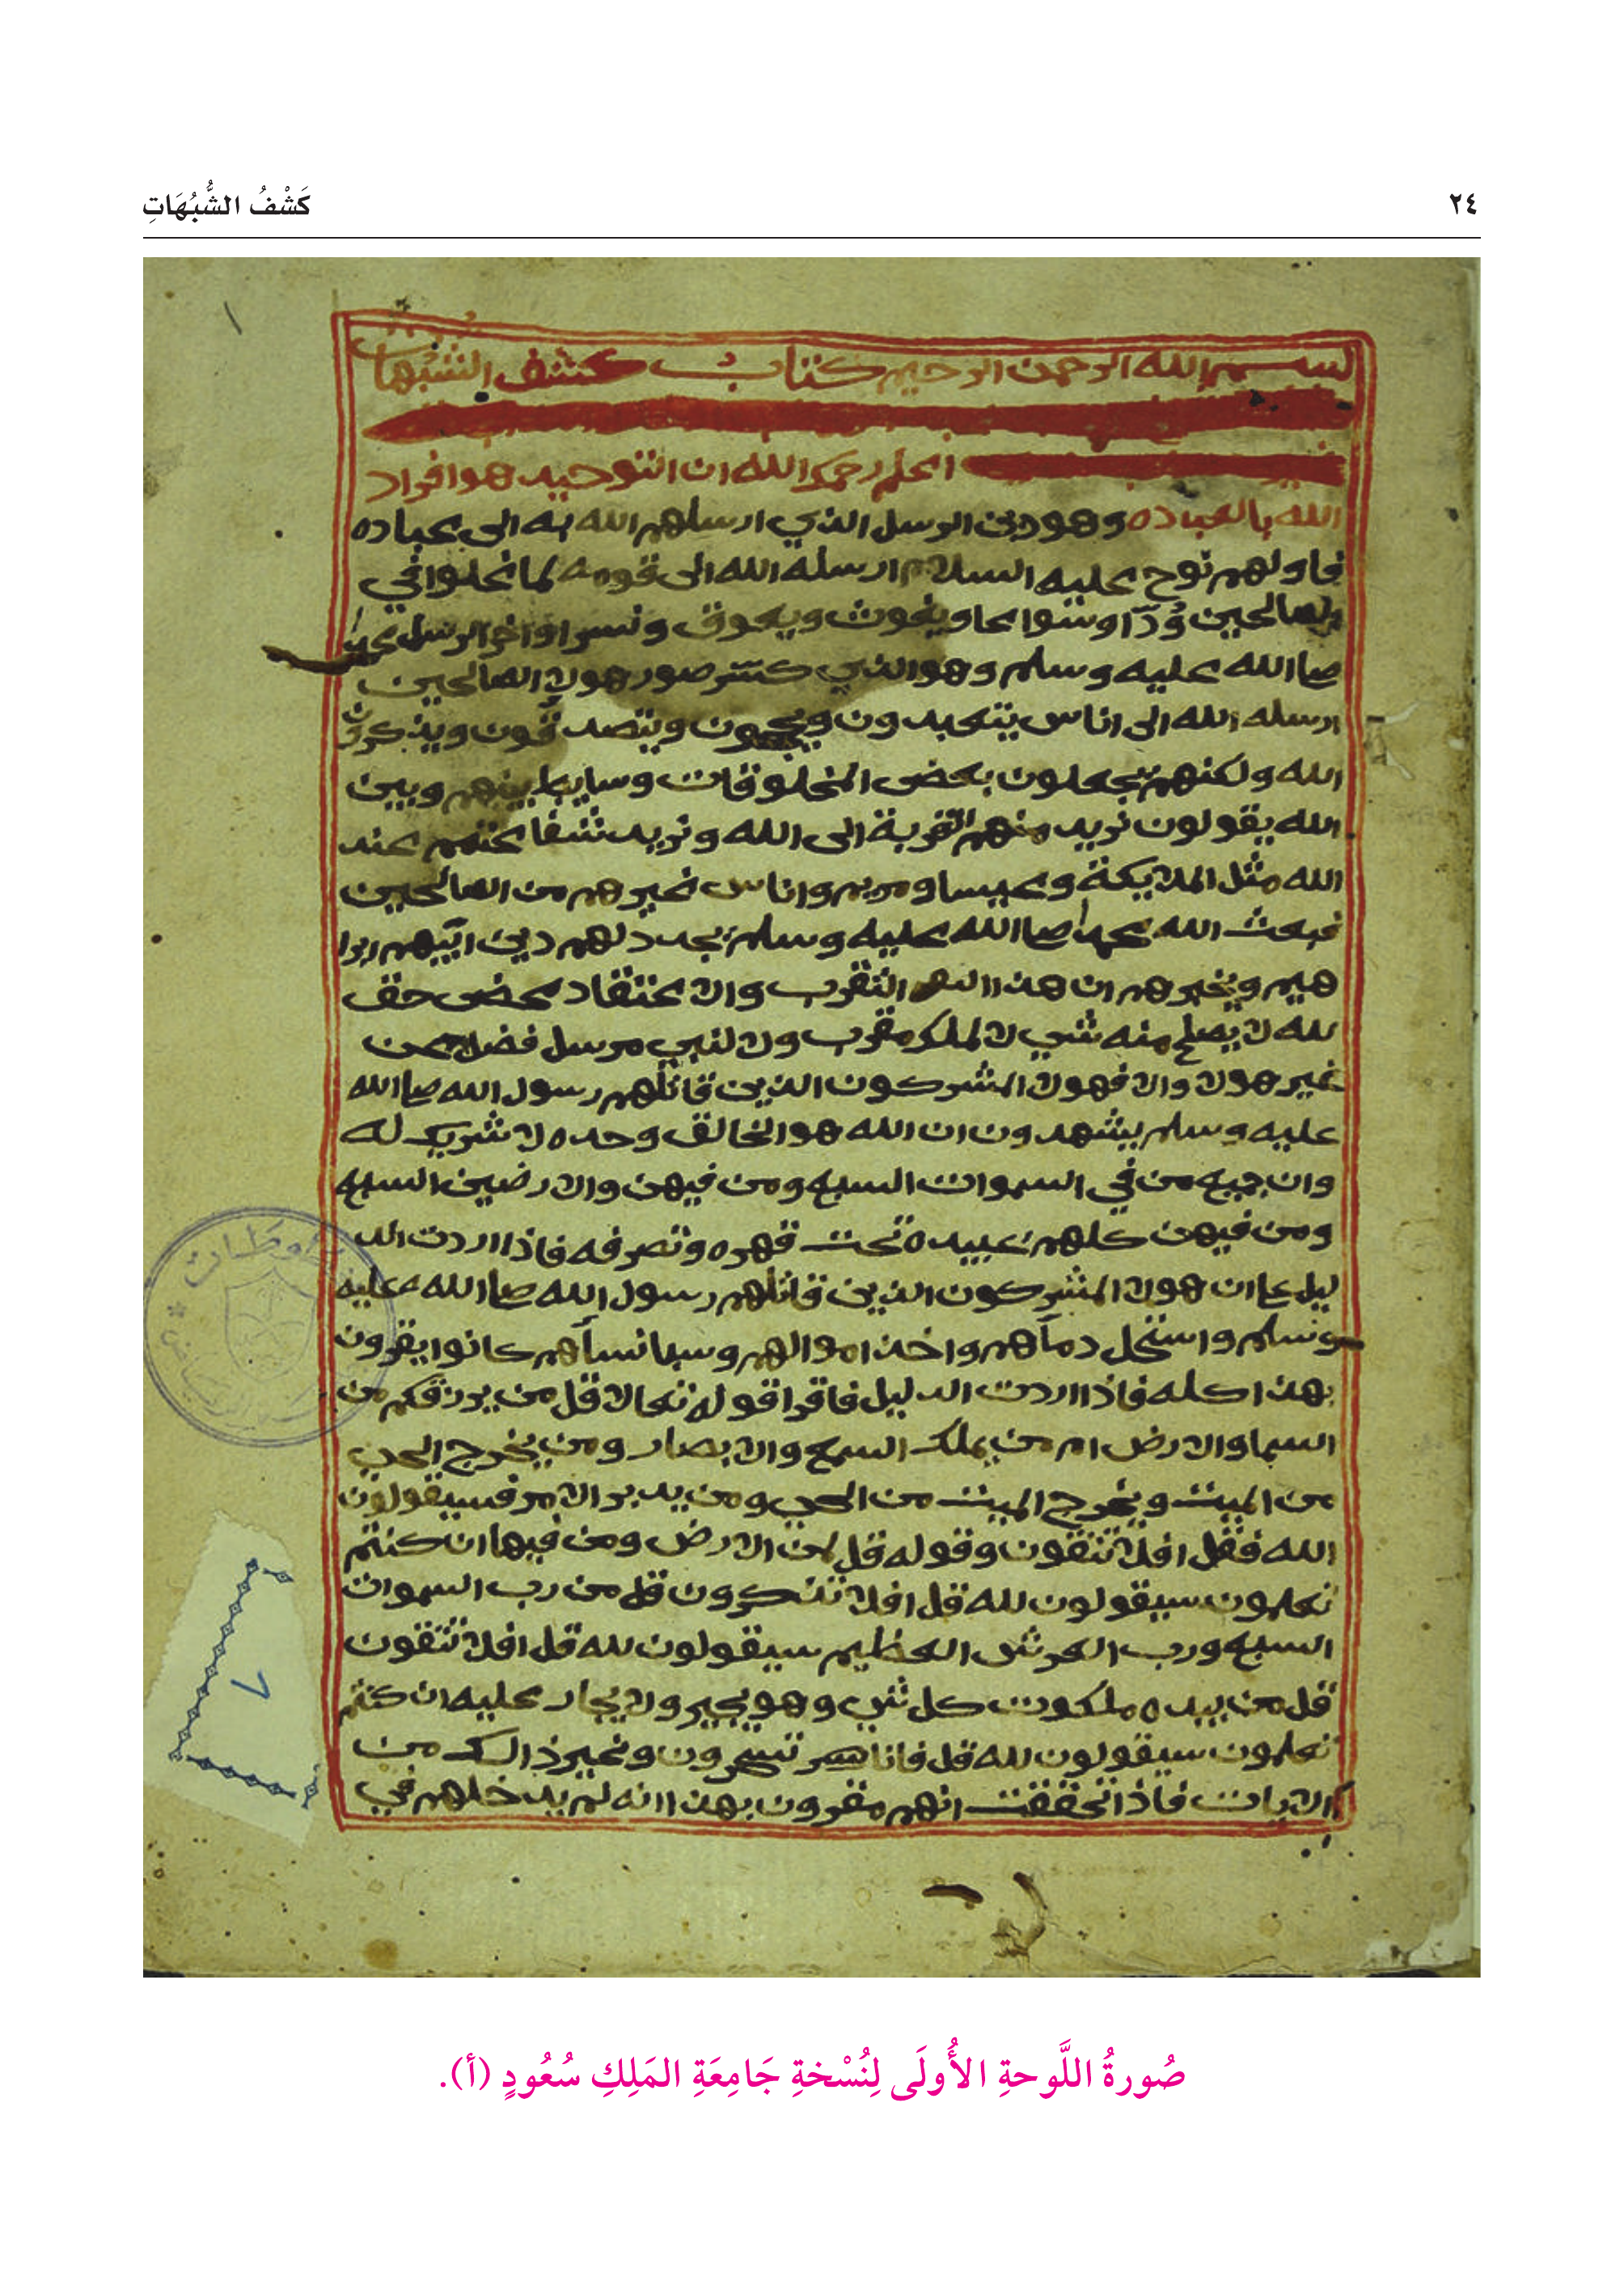 ٢٤
كَشْفُ الشُّبُهَاتِ
بسم الله الرحمن الرحيم كتاب كشف الشبهات
اعلم رحمك الله ان التوحيد هو افراد
الله بالعباده وهو دين الرسل الذي ارسلهم الله به الى عباده
فاولهم نوح عليه السلام ارسله الله الى قومه لما غلوا في
الصالحين وُدّا وسواعا ويغوث ويعوق ونسرا واخر الرسل محمد
صلا الله عليه وسلم وهو الذي كسّر صور هولا الصالحين
ارسله الله الى اناس يتعبدون ويحجون ويتصدقون ويذكرون
الله ولكنهم يجعلون بعض المخلوقات وسايط بينهم وبين
الله يقولون نريد منهم التقربة الى الله ونريد شفاعتهم عند
الله مثل الملايكة وعيسا ومريم واناس غيرهم من الصالحين
فبعث الله محمدا صلا الله عليه وسلم يجدد لهم دين ابيهم ابرا
هيم ويخبرهم ان هذا التقرب والاعتقاد محض حق
لله لا يصلح منه شي لا لملك مقرب ولا لنبي مرسل فضلا عمن
غير هولا والا فهولا المشركون الذين قاتلهم رسول الله صلا الله
عليه وسلم يشهدون ان الله هو الخالق وحده لا شريك له
وان جميع من في السموات السبع ومن فيهن والارضين السبع
ومن فيهن كلهم عبيده تحت قهره وتصرفه فاذا اردت الد
ليل علا ان هولا المشركون الذين قاتلهم رسول الله صلا الله عليه
وسلم واستحل دمآهم واخذ اموالهم وسبا نسآهم كانوا يقرون
بهذا كله فاذا اردت الدليل فاقرا قوله تعالا قل من يرزقكم من
السما والارض ام من يملك السمع والابصار ومن يخرج الحي
من الميت ويخرج الميت من الحي ومن يدبر الامر فسيقولون
الله فقل افلا تتقون وقوله قل لمن الارض ومن فيها ان كنتم
تعلمون سيقولون لله قل افلا تذكرون قل من رب السموات
السبع ورب العرش العظيم سيقولون لله قل افلا تتقون
قل من بيده ملكوت كل شي وهو يجير ولا يجار عليه ان كنتم
تعلمون سيقولون لله قل فانا تسحرون وغير ذالك من
الايات فاذا تحققت انهم مقرون بهذا انه لم يدخلهم في
٧
صُورةُ اللَّوحةِ الأُولَى لِنُسْخةِ جَامِعَةِ المَلِكِ سُعُودٍ (أ).